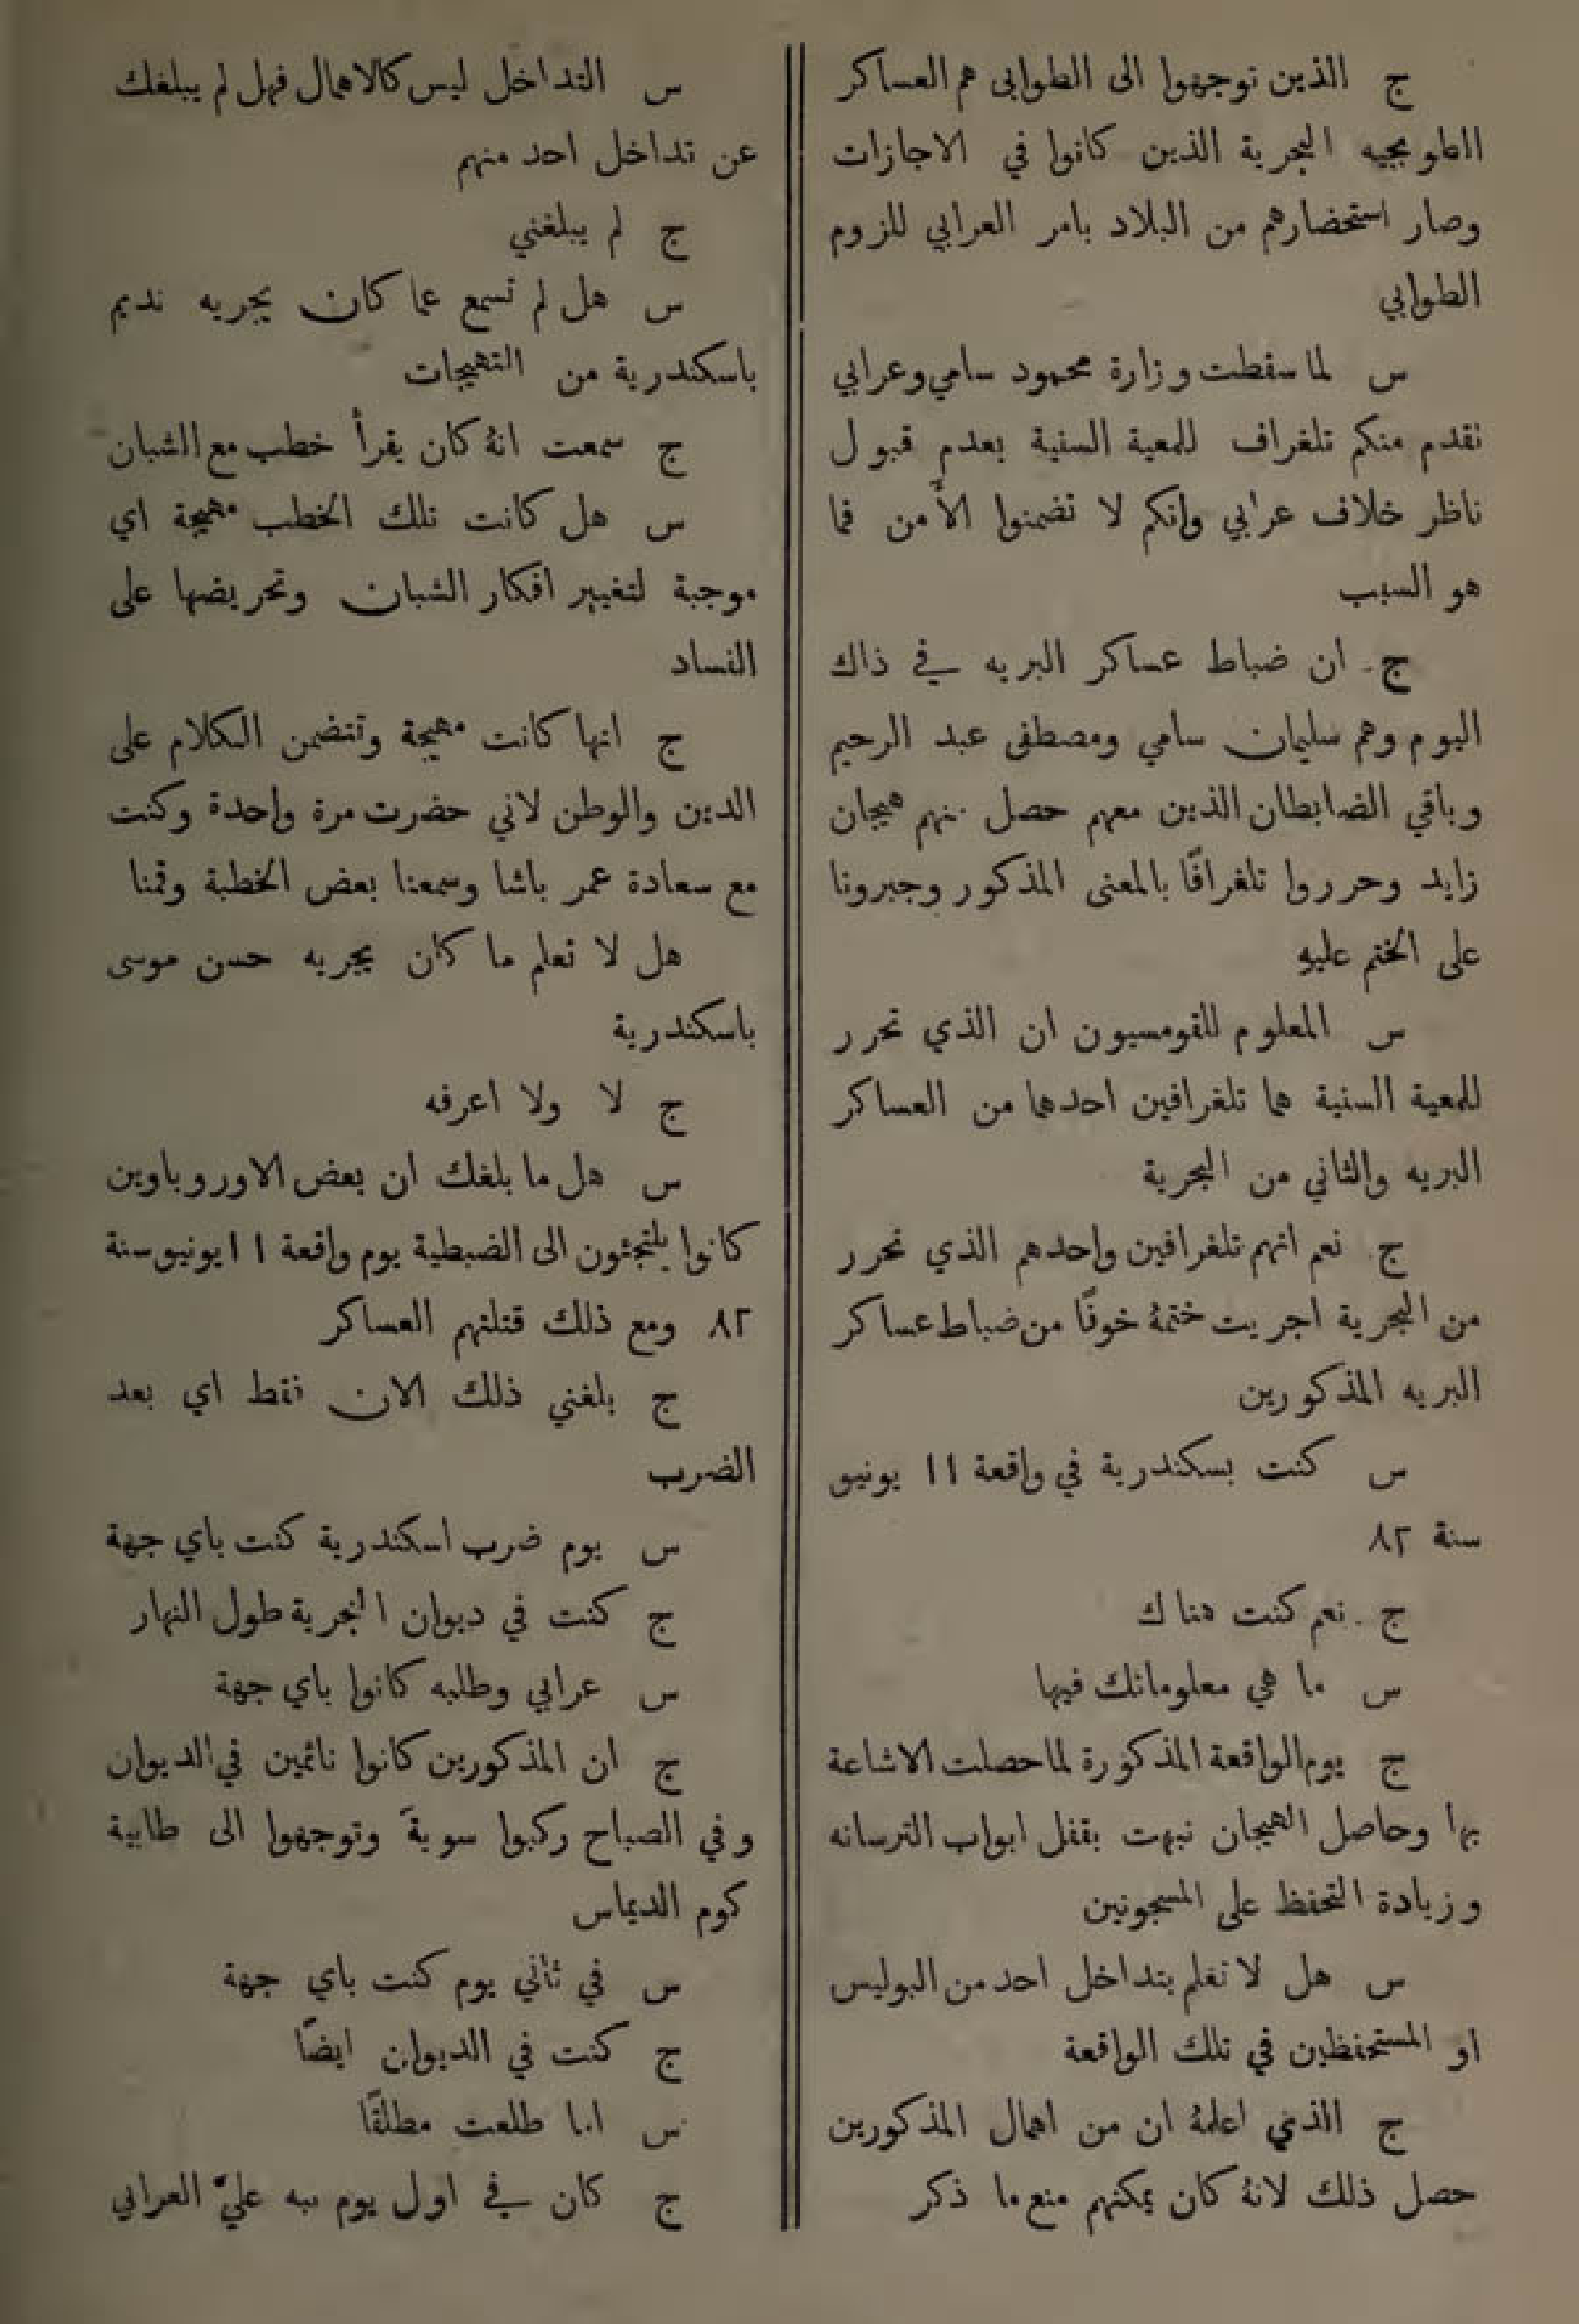 ج الذين توجهوا الى الطوابي هم العساكر
الطوبجيه البحرية الذين كانوا في الاجازات
وصار استحضارهم من البلاد بامر العرابي للزوم
الطوابي
س لما سقطت وزارة محمود سامي وعرابي
تقدم منكم تلغراف للمعية السنية بعدم قبول
ناظر خلاف عرابي وانكم لا تضمنوا الأمن فما
هو السبب
ج ان ضباط عساكر البريه في ذاك
اليوم وهم سليمان سامي ومصطفى عبد الرحيم
وباقي الضابطان الذين معهم حصل منهم هيجان
زايد وحرروا تلغرافًا بالمعنى المذكور وجبرونا
على الختم عليهِ
س المعلوم للقومسيون ان الذي تحرر
للمعية السنية هما تلغرافين احدهما من العساكر
البريه والثاني من البحرية
ج نعم انهم تلغرافين واحدهم الذي تحرر
من البحرية اجريت ختمهُ خوفًا من ضباط عساكر
البريه المذكورين
س كنت بسكندرية في واقعة ١١ يونيو
سنة ٨٢
ج نعم كنت هناك
س ما هي معلوماتك فيها
ج يوم الواقعة المذكورة لما حصلت الاشاعة
بها وحاصل الهيجان نبهت بقفل ابواب الترسانه
وزيادة التحفظ على المسجونين
س هل لا تعلم بتداخل احد من البوليس
او المستحفظين في تلك الواقعة
ج الذي اعلمهُ ان من اهمال المذكورين
حصل ذلك لانهُ كان يمكنهم منع ما ذكر
س التداخل ليس كالاهمال فهل لم يبلغك
عن تداخل احد منهم
ج لم يبلغني
س هل لم تسمع عما كان يجريه نديم
باسكندرية من التهيجات
ج سمعت انهُ كان يقرأ خطب مع الشبان
س هل كانت تلك الخطب مهيجة اي
موجبة لتغيير افكار الشبان وتحريضها على
الفساد
ج انها كانت مهيجة وتتضمن الكلام على
الدين والوطن لاني حضرت مرة واحدة وكنت
مع سعادة عمر باشا وسمعنا بعض الخطبة وقمنا
هل لا تعلم ما كان يجريه حسن موسى
باسكندرية
ج لا ولا اعرفه
س هل ما بلغك ان بعض الاوروباوين
كانوا يلتجئون الى الضبطية يوم واقعة ١١ يونيو سنة
٨٢ ومع ذلك قتلتهم العساكر
ج بلغني ذلك الان فقط اي بعد
الضرب
س يوم ضرب اسكندرية كنت باي جهة
ج كنت في ديوان البحرية طول النهار
س عرابي وطلبه كانوا باي جهة
ج ان المذكورين كانوا نائمين في الديوان
وفي الصباح ركبوا سويةً وتوجهوا الى طابية
كوم الديماس
س في ثاني يوم كنت باي جهة
ج كنت في الديوان ايضًا
س اما طلعت مطلقًا
ج كان في اول يوم نبه عليّ العرابي